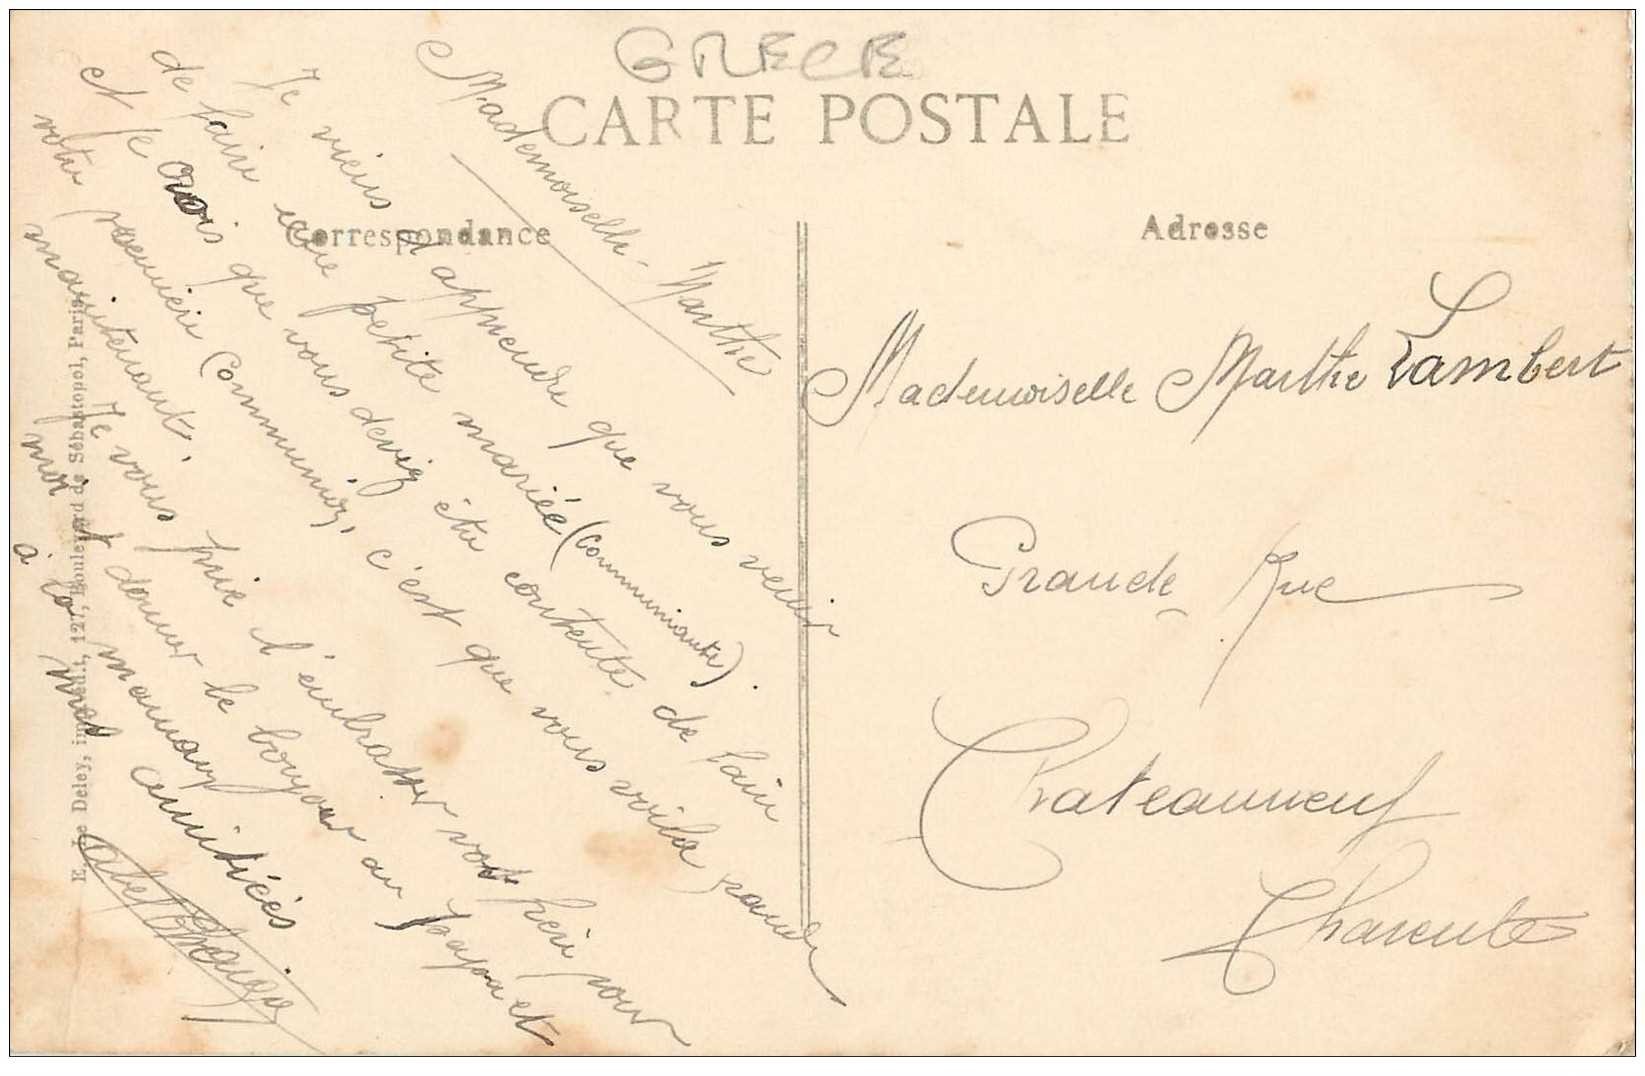 GRECE
CARTE POSTALE
Correspondance
Adresse
Mademoiselle Marthe
Je viens d'apprendre que vous venir
de faire une petite mariée (communiante).
et je crois que vous devez être contente de faire
votre première Communion, c'est que vous voilà grande
maintenant.
Je vous prie d'embrasser votre frère pour
moi et donner le bonjour au papa et
à la maman
mes amitiées
Mademoiselle Marthe Lambert
Grande Rue
Chateauneuf
Charente
E. Le Deley, imp.-édit., 127, Boulevard de Sébastopol, Paris